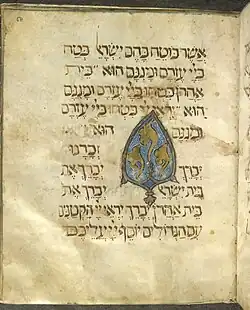 אשר בוטח בהם ישראל בטח
ביי עזרם ומגנם הוא בית
אהרן בטחו ביי עזרם ומגנם
הוא יראי יי בטחו ביי עזרם
ומגנם הוא יי
זכרנו
יברך יברך את
בית ישראל יברך את
בית אהרן יברך יראי יי הקטנים
עם הגדולים יוסף יי עליכם